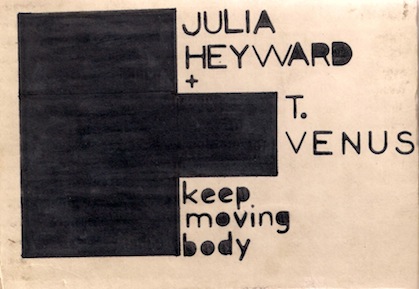 JULIA
HEYWARD
+
T.
VENUS
keep
moving
body